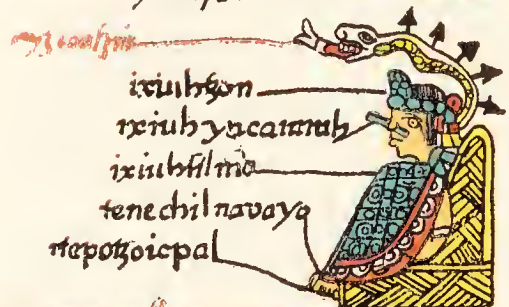 ixiuhtzon
ixiuh yacamiuh
ixiuhtilma
tenechilnavayo
itepotzoicpal